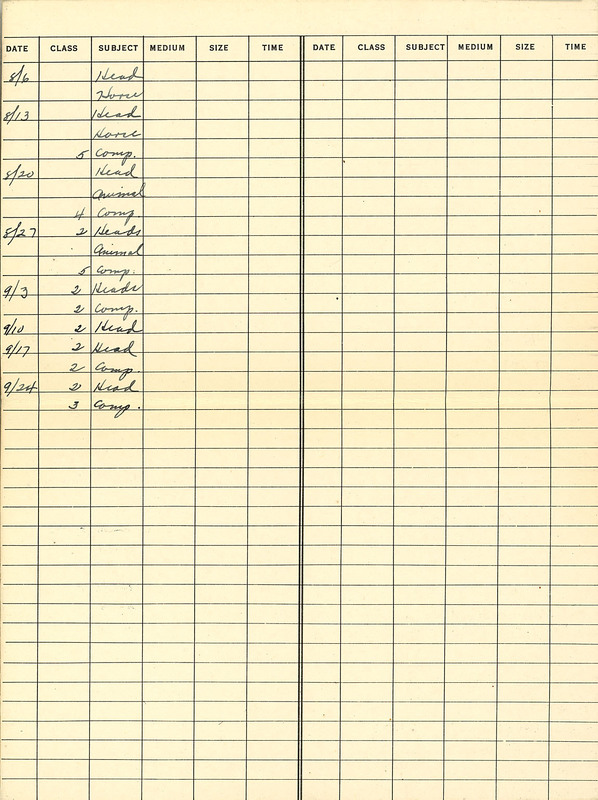 DATE CLASS SUBJECT MEDIUM SIZE TIME DATE CLASS SUBJECT MEDIUM SIZE TIME
8/6 Head
Horse
8/13 Head
Horse
5 Comp.
8/20 Head
Animal
4 Comp.
8/27 2 Heads
Animal
5 Comp.
9/3 2 Heads
2 Comp.
9/10 2 Head
9/17 2 Head
2 Comp.
9/24 2 Head
3 Comp.